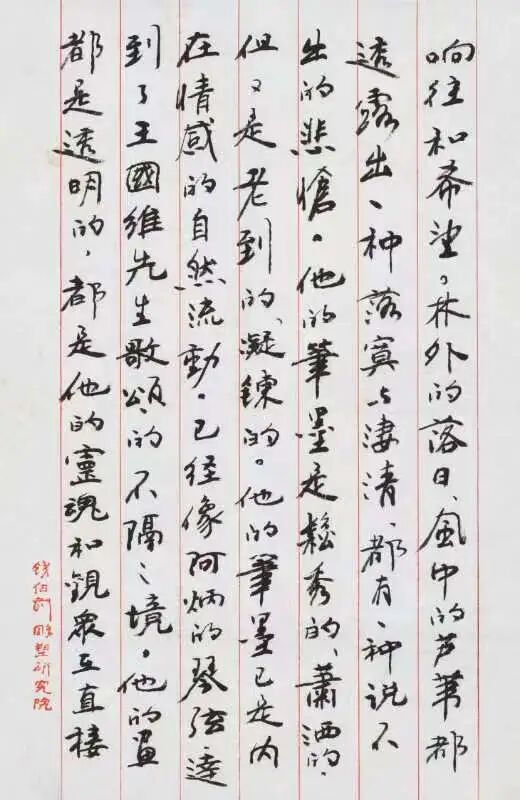 响往和希望。林外的落日、風中的芦葦都
透露出一种落寞与淒清、都有一种说不
出的悲愴。他的筆墨是鬆秀的、蕭洒的、
但又是老到的、凝鍊的。他的筆墨已是内
在情感的自然流動。已经像阿炳的琴弦達
到了王國維先生歌頌的不隔之境。他的畫
都是透明的，都是他的靈魂和觀衆互直接
钱绍武雕塑研究院